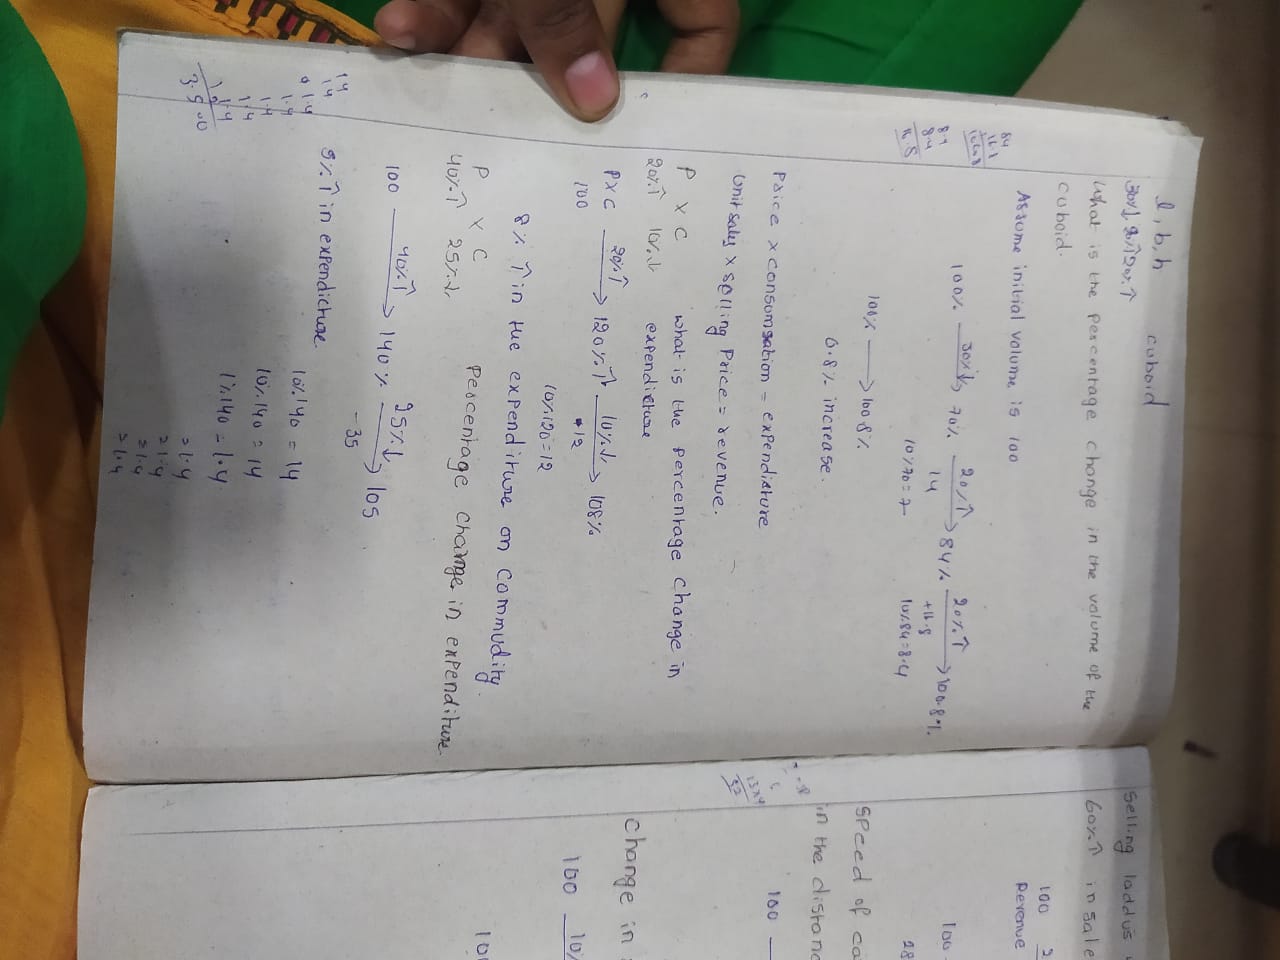 l, b, h    cuboid
30%↓, 20%↑ 20%↑
What is the percentage change in the volume of the
cuboid.
84
16.8
100.8
8.4
8.4
16.8
Assume initial volume is 100
100% 30%↓ 70% 20%↑ 84% 20%↑ 100.8%
14 +16.8
10%70 = 7 10%84=8.4
100% → 100.8%
0.8% increase.
Price x consumsation = expendiature
Unit sales x selling Price = revenue.
P x C what is the percentage change in
20%↑ 10%↓ expendiature
PxC 20%↑ → 120%↑ 10%↓ → 108%
100 12
10%120=12
8% ↑ in the expenditure on commudity.
P x C Percentage change in expenditure
40%↑ 25%↓
100 40%↑ → 140% 25%↓ → 105
-35
5%↑ in expendicture
10%140 = 14
10%140 = 14
1%140 = 1.4
= 1.4
= 1.4
= 1.4
= 1.4
14
14
1.4
1.4
1.4
1.4
1.4
35.00
Selling laddus
60%↑ in sale
100 2
Revenue
100
28
Speed of ca
in the distanc
100
Change in
100 10%